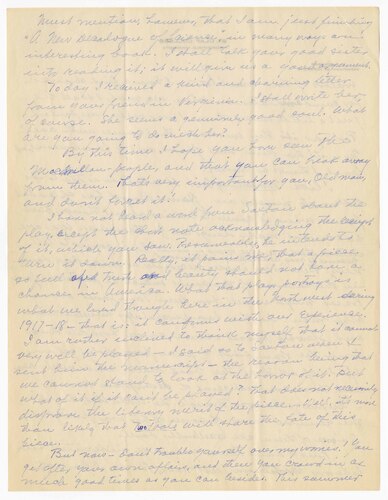 Must mention, however, that I am just finishing
"A New Decalogue of Science," in many ways an
interesting book. I shall talk your good sister
into reading it; it will give us a
To day I received a kind and charming letter
from your friend in Versina. I shall write her,
of course. She seems a genuinely good soul. What
are you going to do with her?
By this time I hope you have seen the
Macmillan people, and that you can break away
from them. That's very important for you, Old man,
and don't forget it!
I have not heard a word from about the
play, except the short note acknowledging the receipt
of it, which you saw. Presumably, he intends to
turn it down. Really, it pains me, that a piece
so full of truth and beauty should not have a
chance in America. What that play portrays is
what we lived through here in the Northwest during
1917-18 – that is: it conforms with our experience.
I am rather inclined to think myself that it cannot
very well be played – I said so to when I
sent him the manuscript – the reason being that
we cannot stand to look at the horror of it. But
what of it if it can't be played? That does not necessarily
disprove the literary merit of the piece. Well, it's more
than likely that will share the fate of this
piece.
But now – don't trouble yourself over my worries! You
get after your own affairs, and then you crowd in as
much good times as you can besides. This summer